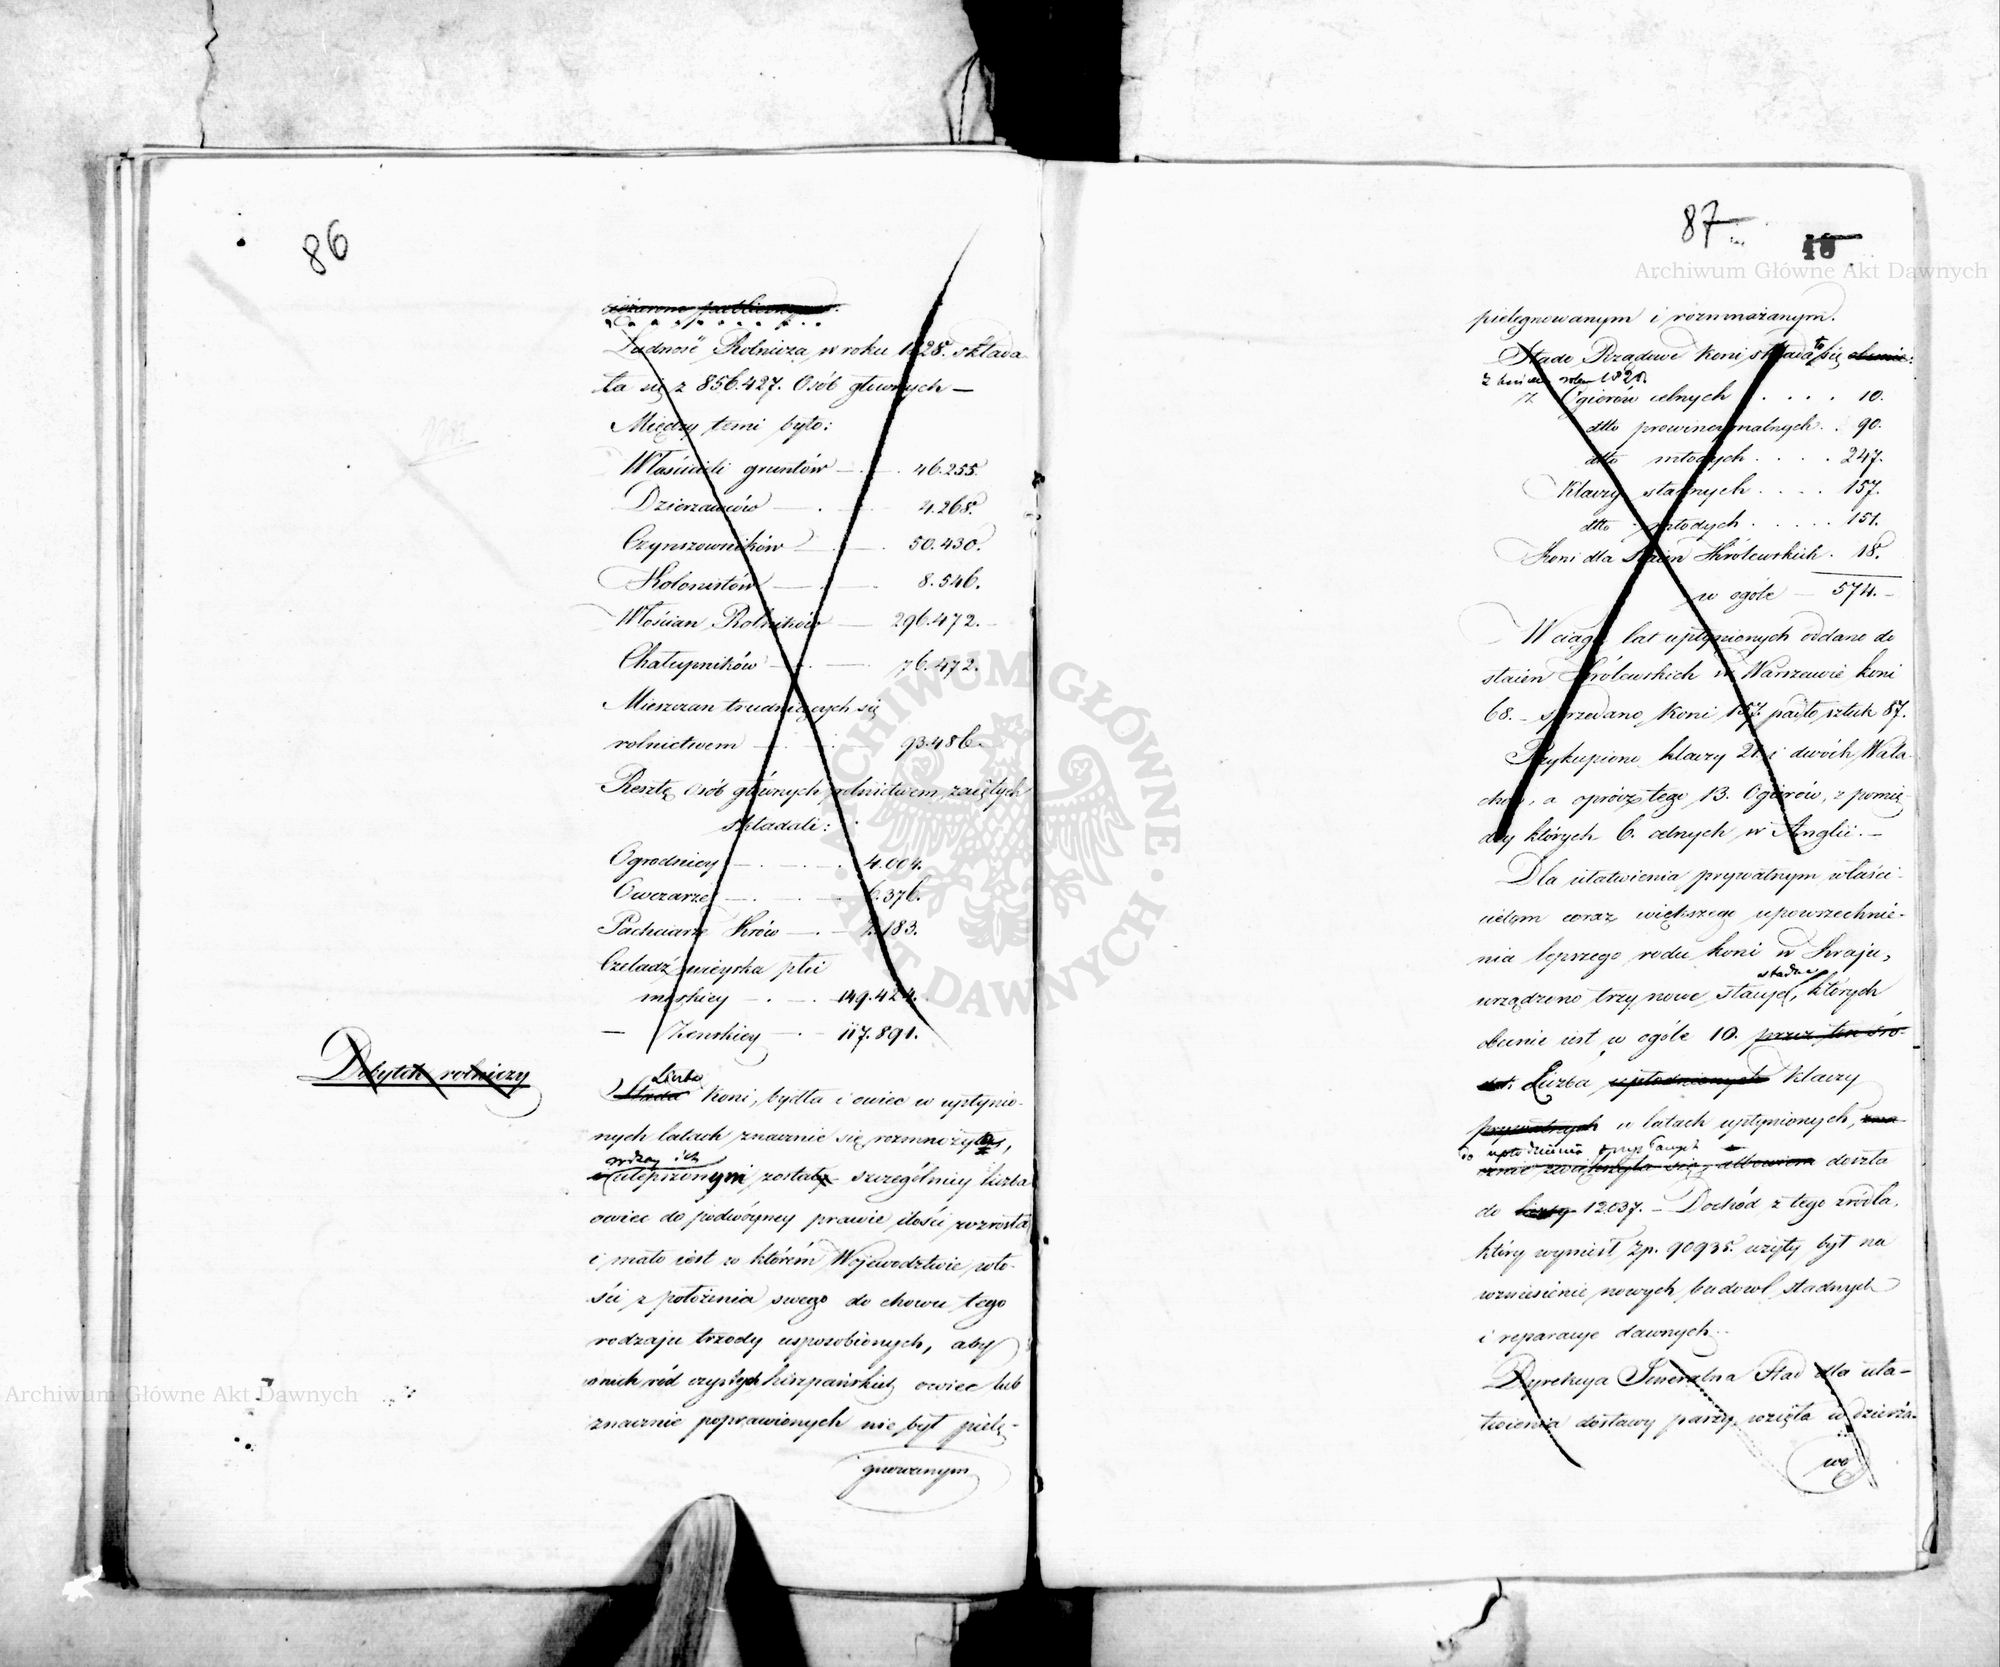 86
Ludność Rolnicza w roku 1828. składa
ła się z 856.427. Osób głównych —
Między temi było:
Właścicieli gruntów — . — . 46.255.
Dzierzawców — . — 4.268.
Czynszowników — . — . 50.430.
Kolonistów — . — 8.546.
Włościan Rolników — 296.472.
Chałupników — . — 76.472.
Mieszczan trudniących się
rolnictwem — . — 93.486.
Resztę osób głównych rolnictwem zaiętych
składali:
Ogrodnicy — . — . 4.004.
Owczarze — . — . 6.376.
Pachciarze Krów — . — 7.183.
Czeladź wieyska płci
męskiey — . — 149.424.
— Żenskiey — . — 117.891.
Dobytek rolniczy
Liczba
Stada koni, bydła i owiec w upłynio-
nych latach znacznie się rozmnożyła,
rodzay ich
ulepszonym został szczególniey liczba
owiec do podwóyney prawie ilości wzrosła
i mało iest w którém Województwie wło-
ści z położenia swego do chowu tego
rodzaju trzody usposobionych, aby
w nich ród czystych hiszpańskich owiec lub
znacznie poprawionych nie był pielę-
gnowanym
87
48
pielęgnowanym i rozmnażanym.
Stado Rządowe koni składało się obecnie:
z końcem roku 1828.
z Ogierów celnych . . . . 10.
dtto prowincyonalnych . . 90.
dtto młodych . . . . 247.
Klaczy stadnych . . . . 157.
dtto młodych . . . . . 151.
Koni dla stajen Królewskich . 18.
w ogóle — 574. —
W ciągu lat upłynionych oddano do
staien Królewskich w Warszawie koni
68. – sprzedano koni 157. padło sztuk 87.
Przykupiono klaczy 21. i dwóch Wała-
chów, a oprócz tego 13. Ogierów, z pomię-
dzy których 6. celnych w Anglii. —
Dla ułatwienia prywatnym właści-
cielom coraz większego upowszechnie-
nia lepszego rodu koni w Kraju,
stadne
urządzono trzy nowe stacye, których
obecnie iest w ogóle 10. przez ten śro-
dek. Liczba upłodnionych klaczy
prywatnych w latach upłynionych, zna-
do upłodnienia
cznie zwiększyła się, albowiem doszła
do liczby 12.037. – Dochód z tego źródła,
który wyniósł Zp. 90935. użyty był na
wzniesienie nowych budowl stadnych
i reparacye dawnych.
Dyrekcya Generalna Stad dla uła-
twienia dostawy paszy wzięła w dzierża-
wę
Archiwum Główne Akt Dawnych
Archiwum Główne Akt Dawnych
ARCHIWUM GŁÓWNE · AKT DAWNYCH ·